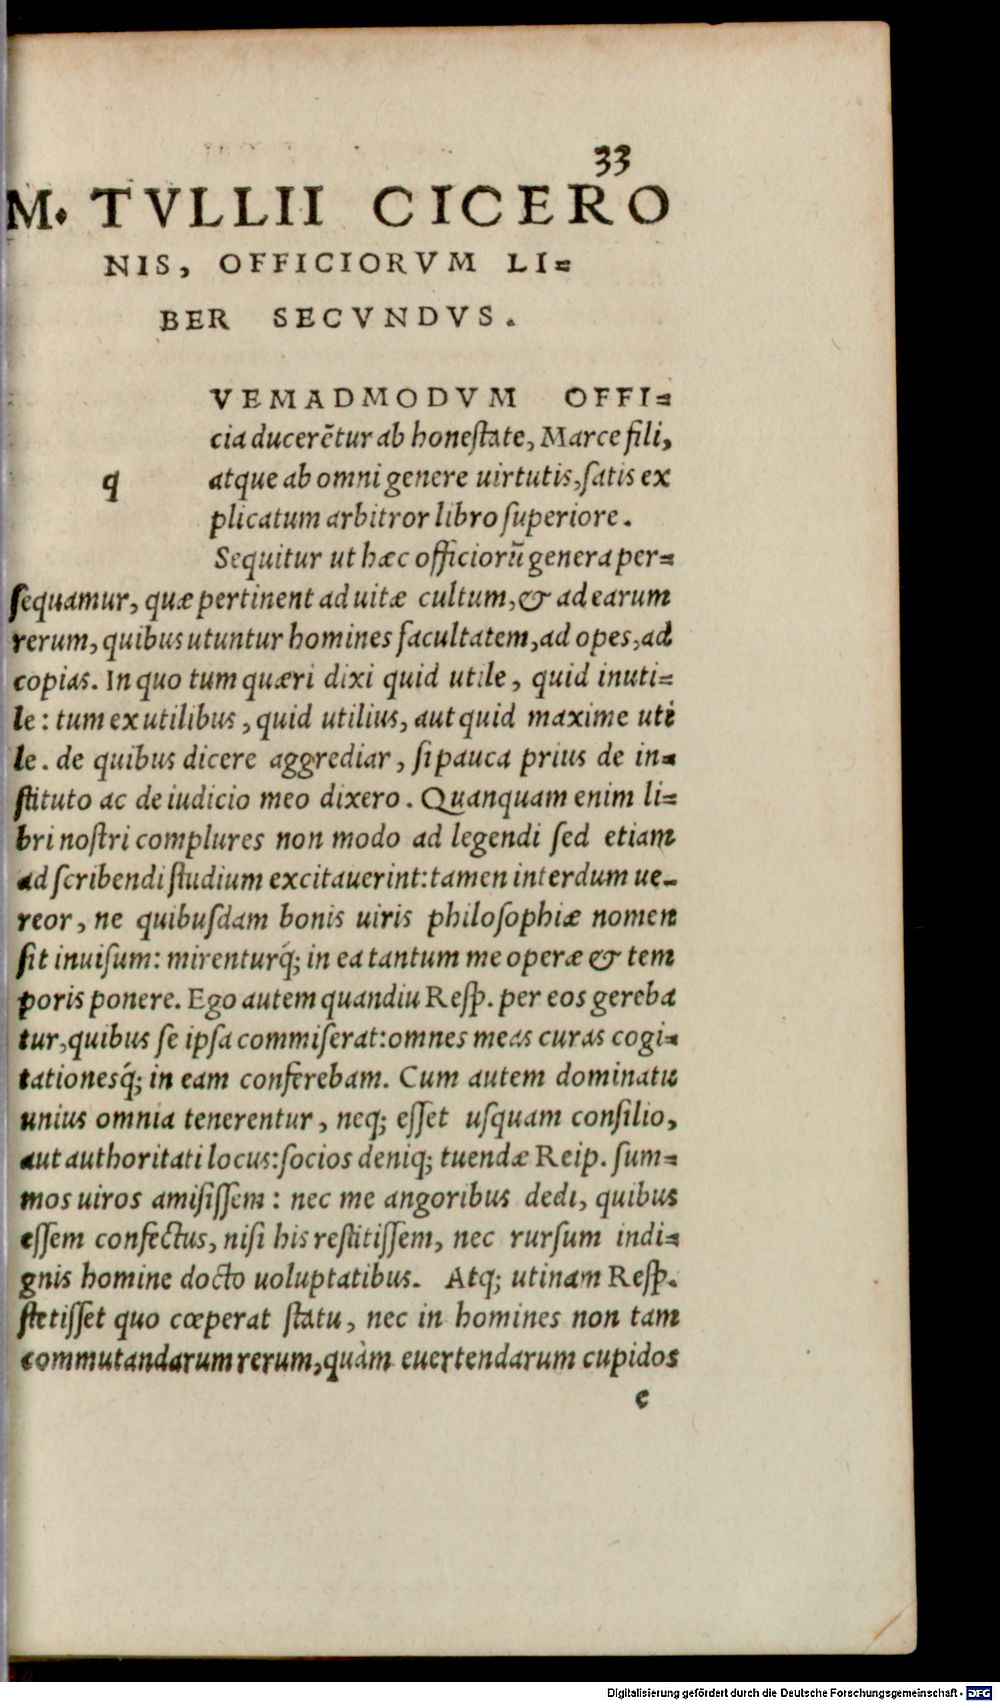 33
M. TVLLII CICERO
NIS, OFFICIORVM LI=
BER SECVNDVS.
q VEMADMODVM OFFI=
cia ducerẽtur ab honeſtate, Marce fili,
atque ab omni genere uirtutis, ſatis ex
plicatum arbitror libro ſuperiore.
Sequitur ut hæc officiorũ genera per=
ſequamur, quæ pertinent ad uitæ cultum, & ad earum
rerum, quibus utuntur homines facultatem, ad opes, ad
copias. In quo tum quæri dixi quid utile, quid inuti=
le: tum ex utilibus, quid utilius, aut quid maxime uti
le. de quibus dicere aggrediar, ſi pauca prius de in=
ſtituto ac de iudicio meo dixero. Quanquam enim li=
bri noſtri complures non modo ad legendi ſed etiam
ad ſcribendi ſtudium excitauerint: tamen interdum ue=
reor, ne quibuſdam bonis uiris philoſophiæ nomen
ſit inuiſum: mirenturq́; in ea tantum me operæ & tem
poris ponere. Ego autem quandiu Reſp. per eos gereba
tur, quibus ſe ipſa commiſerat: omnes meas curas cogi=
tationesq́; in eam conferebam. Cum autem dominatu
unius omnia tenerentur, neq; eſſet uſquam conſilio,
aut authoritati locus: ſocios deniq; tuendæ Reip. ſum=
mos uiros amiſiſſem: nec me angoribus dedi, quibus
eſſem confectus, niſi his reſtitiſſem, nec rurſum indi=
gnis homine docto uoluptatibus. Atq; utinam Reſp.
ſtetiſſet quo cœperat ſtatu, nec in homines non tam
commutandarum rerum, quàm euertendarum cupidos
e
Digitalisierung gefördert durch die Deutsche Forschungsgemeinschaft - DFG